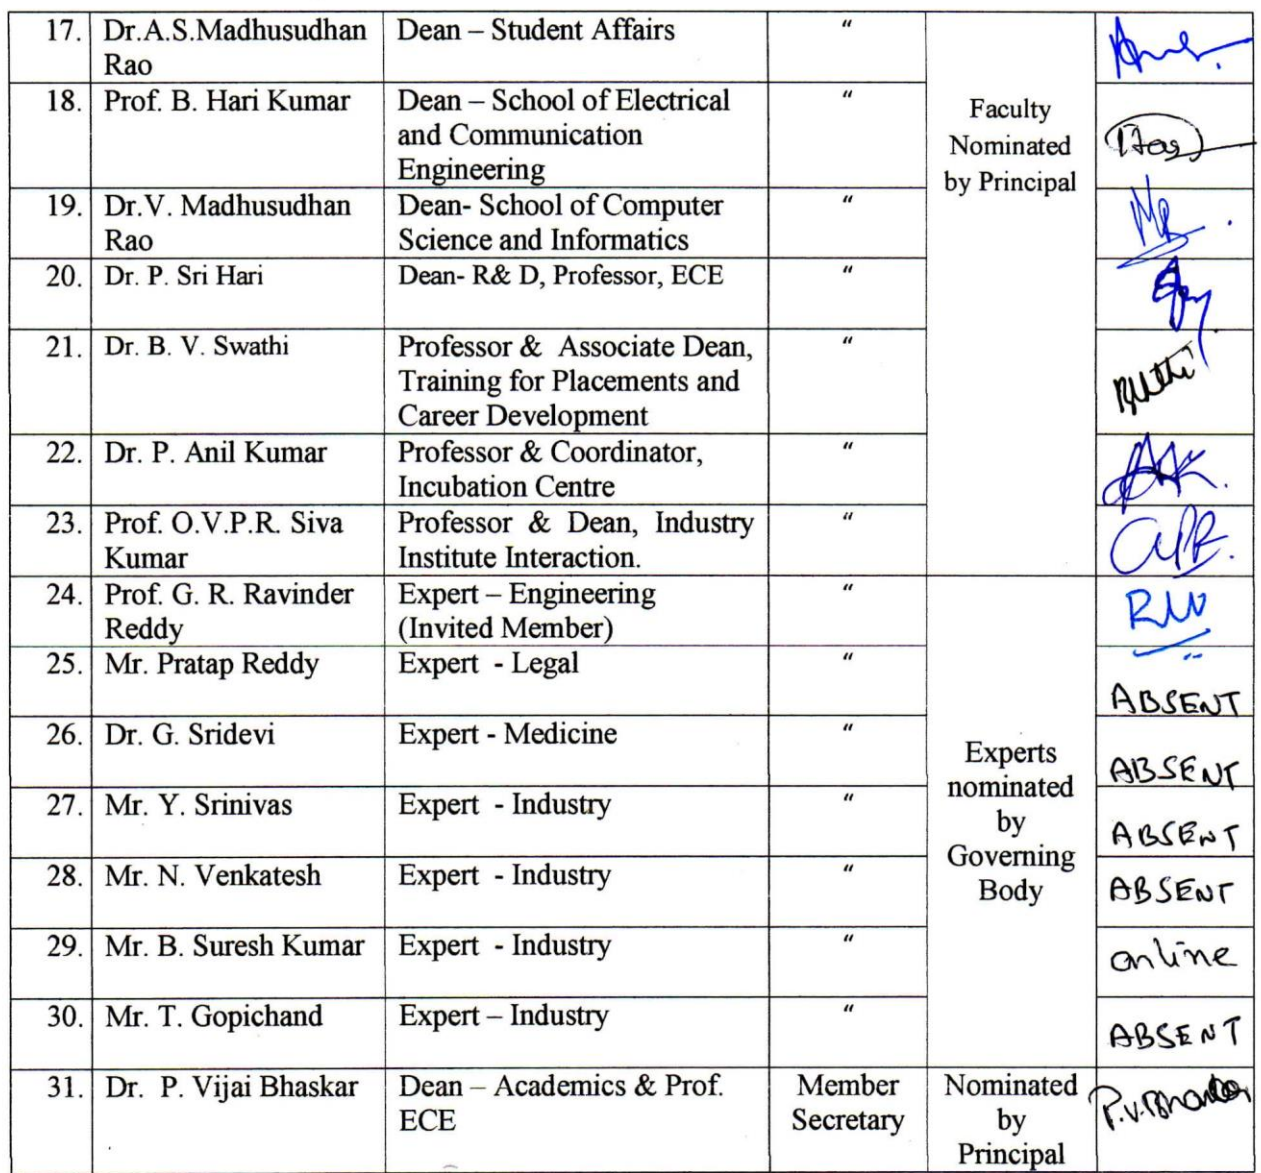 17. Dr.A.S.Madhusudhan Rao Dean – Student Affairs "
18. Prof. B. Hari Kumar Dean – School of Electrical and Communication Engineering "
Faculty Nominated by Principal
19. Dr.V. Madhusudhan Rao Dean- School of Computer Science and Informatics "
20. Dr. P. Sri Hari Dean- R& D, Professor, ECE "
21. Dr. B. V. Swathi Professor & Associate Dean, Training for Placements and Career Development "
22. Dr. P. Anil Kumar Professor & Coordinator, Incubation Centre "
23. Prof. O.V.P.R. Siva Kumar Professor & Dean, Industry Institute Interaction. "
24. Prof. G. R. Ravinder Reddy Expert – Engineering (Invited Member) "
25. Mr. Pratap Reddy Expert - Legal " ABSENT
26. Dr. G. Sridevi Expert - Medicine " ABSENT
Experts nominated by Governing Body
27. Mr. Y. Srinivas Expert - Industry " ABSENT
28. Mr. N. Venkatesh Expert - Industry " ABSENT
29. Mr. B. Suresh Kumar Expert - Industry " online
30. Mr. T. Gopichand Expert – Industry " ABSENT
31. Dr. P. Vijai Bhaskar Dean – Academics & Prof. ECE Member Secretary Nominated by Principal P.V.Bhaskar